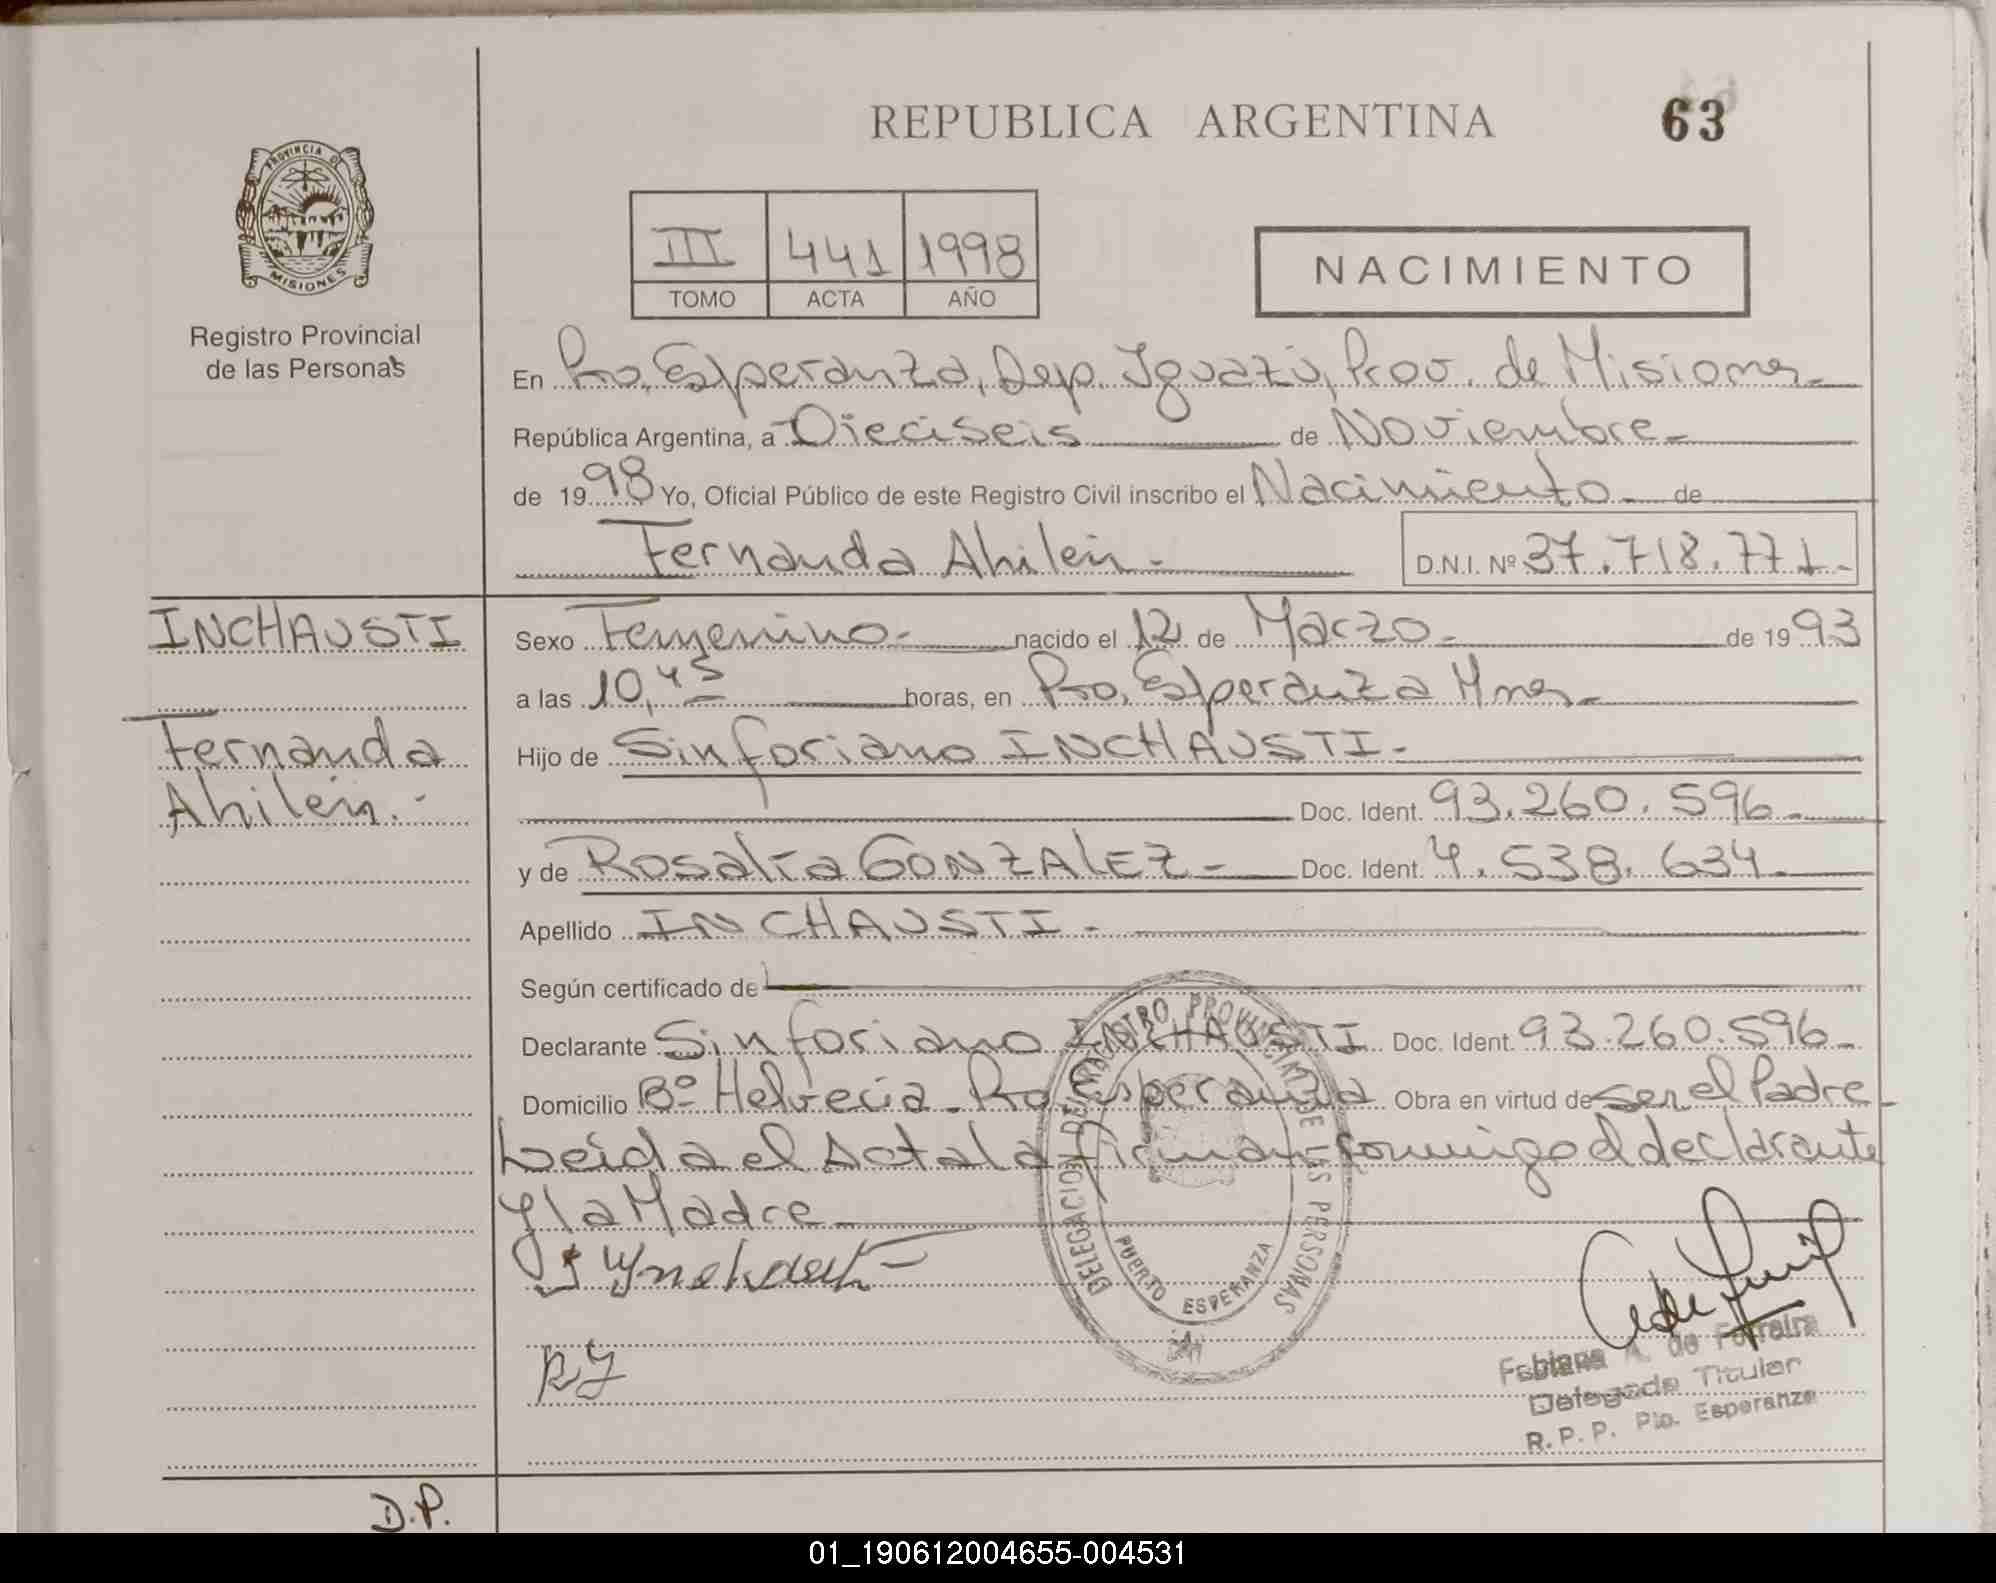 REPUBLICA ARGENTINA
63
PROVINCIA DE MISIONES
Registro Provincial
de las Personas
III 441 1998
TOMO ACTA AÑO
NACIMIENTO
En Pto. Esperanza, Dep. Iguazú, Prov. de Misiones
República Argentina, a Dieciseis de Noviembre
de 1998 Yo, Oficial Público de este Registro Civil inscribo el Nacimiento de
Fernanda Ahilen.-
D.N.I. Nº 37.718.771.-
INCHAUSTI
Fernanda
Ahilen.-
Sexo Femenino.- nacido el 12 de Marzo.- de 1993
a las 10,45 horas, en Pto. Esperanza Mnes.-
Hijo de Sinforiano INCHAUSTI.-
Doc. Ident. 93.260.596.-
y de Rosalia GONZALEZ.- Doc. Ident. 4.538.634.
Apellido INCHAUSTI.-
Según certificado de
Declarante Sinforiano INCHAUSTI Doc. Ident. 93.260.596.-
Domicilio Bº Helvecia - Pto Esperanza Obra en virtud de ser el Padre-
Leida el Acta la firman conmigo el declarante
y la Madre.-
DELEGACION DEL REGISTRO PROVINCIAL DE LAS PERSONAS
PUERTO ESPERANZA
Fabiana A. de Ferreira
Delegada Titular
R. P. P. Pto. Esperanza
D.P.
01_190612004655-004531